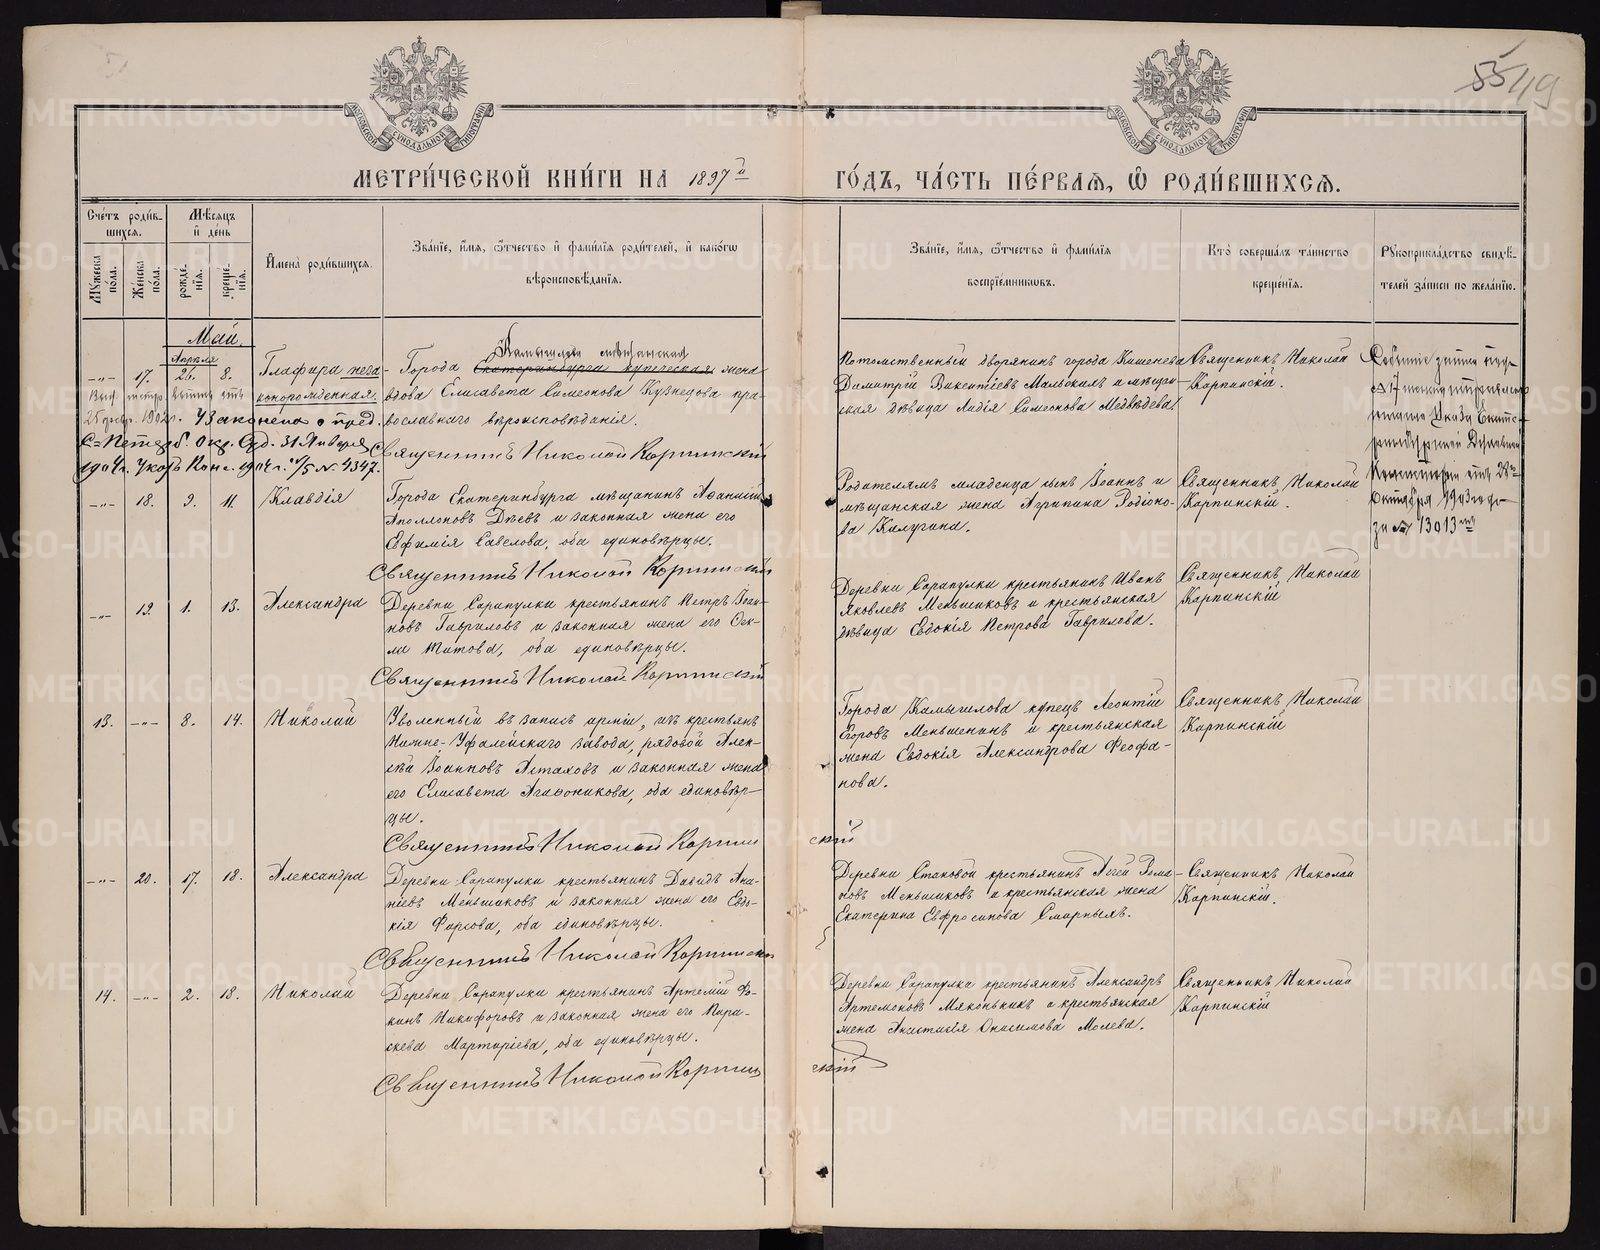 55 49
МЕТРИ́ЧЕСКОЙ КНИ́ГИ НА 1897й
ГО́ДЪ, ЧА́СТЬ ПЕ́РВАѦ, Ѡ҆ РОДИ́ВШИХСѦ.
МОСКОВСКОЙ СѴНОДАЛЬНОЙ ТИПОГРАФІИ
МОСКОВСКОЙ СѴНОДАЛЬНОЙ ТИПОГРАФІИ
Сче́тъ роди́в-
шихсѧ.
Мꙋ́жеска по́ла.
Же́нска по́ла.
Мѣ́сѧцъ
и҆ де́нь
рожде́-
нїѧ.
креще́-
нїѧ.
И҆мена̀ роди́вшихсѧ.
Зва́нїе, и҆́мѧ, ѻ҆́тчество и҆ фами́лїѧ роди́телей, и҆ како́гѡ
вѣроисповѣ́данїѧ.
Зва́нїе, и҆́мѧ, ѻ҆́тчество и҆ фами́лїѧ
воспрїе́мникѡвъ.
Кто̀ соверша́лъ та́инство
креще́нїѧ.
Рꙋкоприкла́дство свидѣ́-
телей за́писи по жела́нїю.
Май.
Апрѣля
—„— 17. 26. 8.
Глафира неза-
конорожденная.
Камышлова мѣщанская
Города Екатеринбурга купеческая жена
вдова Елисавета Симеонова Кузнецова пра-
вославнаго вѣроисповѣданія.
Священникъ Николай Карпинскій
25 1902г. Узаконена опред.
С-Петерб. Окр. Суд. 31 Января
1904г. Указъ Конс. 1904г. № 4347.
Потомственный дворянинъ города Кишенева
Димитрій Викентіевъ Малькихъ и мѣщан-
ская дѣвица Лидія Симеонова Медвѣдева.
Священникъ Николай
Карпинскій.
№ 17
Указу Екате-
ринбургской Духовной
Консисторіи отъ 22го
Октября 1903 года
за № 13013мъ
—„— 18. 9. 11.
Клавдія
Города Екатеринбурга мѣщанинъ Афанасій
Аполлоновъ Дѣевъ и законная жена его
Ефимія Савелова, оба единовѣрцы.
Священникъ Николай Карпинскій
Родителямъ младенца сынъ Іоаннъ и
мѣщанская жена Агрипина Родіоно-
ва Калугина.
Священникъ Николай
Карпинскій.
—„— 19. 1. 13.
Александра
Деревни Сарапулки крестьянинъ Петръ Іоан-
новъ Гавриловъ и законная жена его Фек-
ла Титова, оба единовѣрцы.
Священникъ Николай Карпинскій
Деревни Сарапулки крестьянинъ Иванъ
Яковлевъ Меньшиковъ и крестьянская
дѣвица Евдокія Петрова Гаврилова.
Священникъ Николай
Карпинскій
13. —„— 8. 14.
Николай
Уволенный въ запасъ арміи, изъ крестьянъ
Нижне-Уфалейскаго завода, рядовой Алек-
сѣй Іоанновъ Астаховъ и законная жена
его Елисавета Агафоникова, оба единовѣр-
цы.
Священникъ Николай Карпин
скій
Города Камышлова купецъ Леонтій
Егоровъ Меньшенинъ и крестьянская
жена Евдокія Александрова Феофа-
нова.
Священникъ Николай
Карпинскій
—„— 20. 17. 18.
Александра
Деревни Сарапулки крестьянинъ Давидъ Ана-
ніевъ Меньшиковъ и законная жена его Евдо-
кія Фирсова, оба единовѣрцы.
Священникъ Николай Карпински
Деревни Становой крестьянинъ Агей Рома-
новъ Меньшиковъ и крестьянская жена
Екатерина Евфросинова Смирныхъ.
Священникъ Николай
Карпинскій.
14. —„— 2. 18.
Николай
Деревни Сарапулки крестьянинъ Артемій Фо-
кинъ Никифоровъ и законная жена его Пара-
скева Мартиріева, оба единовѣрцы.
Священникъ Николай Карпин
скій
Деревни Сарапулки крестьянинъ Александръ
Артемоновъ Мяконькихъ и крестьянская
жена Анастасія Онисимова Молева.
Священникъ Николай
Карпинскій
METRIKI.GASO-URAL.RU